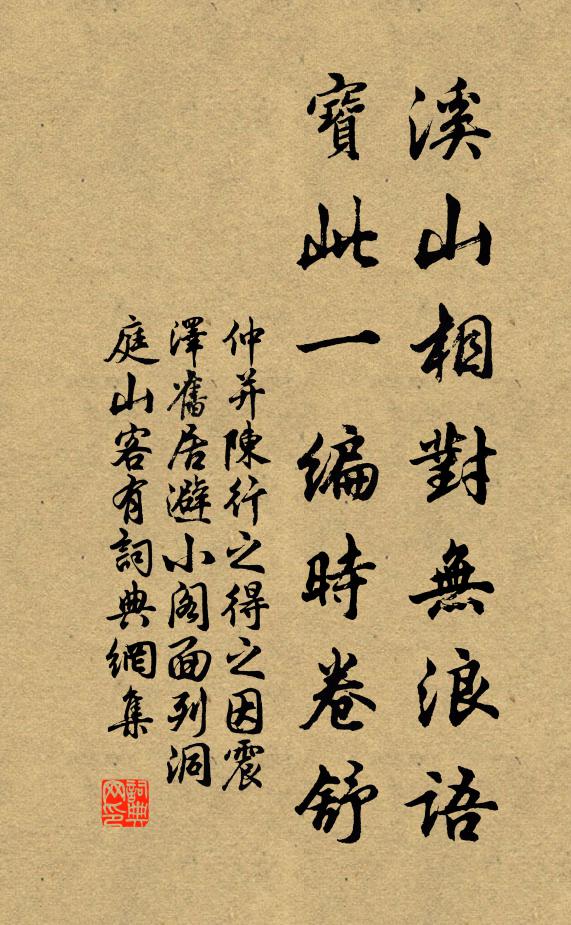 溪山相對無浪語
寶此一編時卷舒
仲并陳行之得之因震
澤舊居避小阁面列洞
庭山客有詞典網集
詞典網印